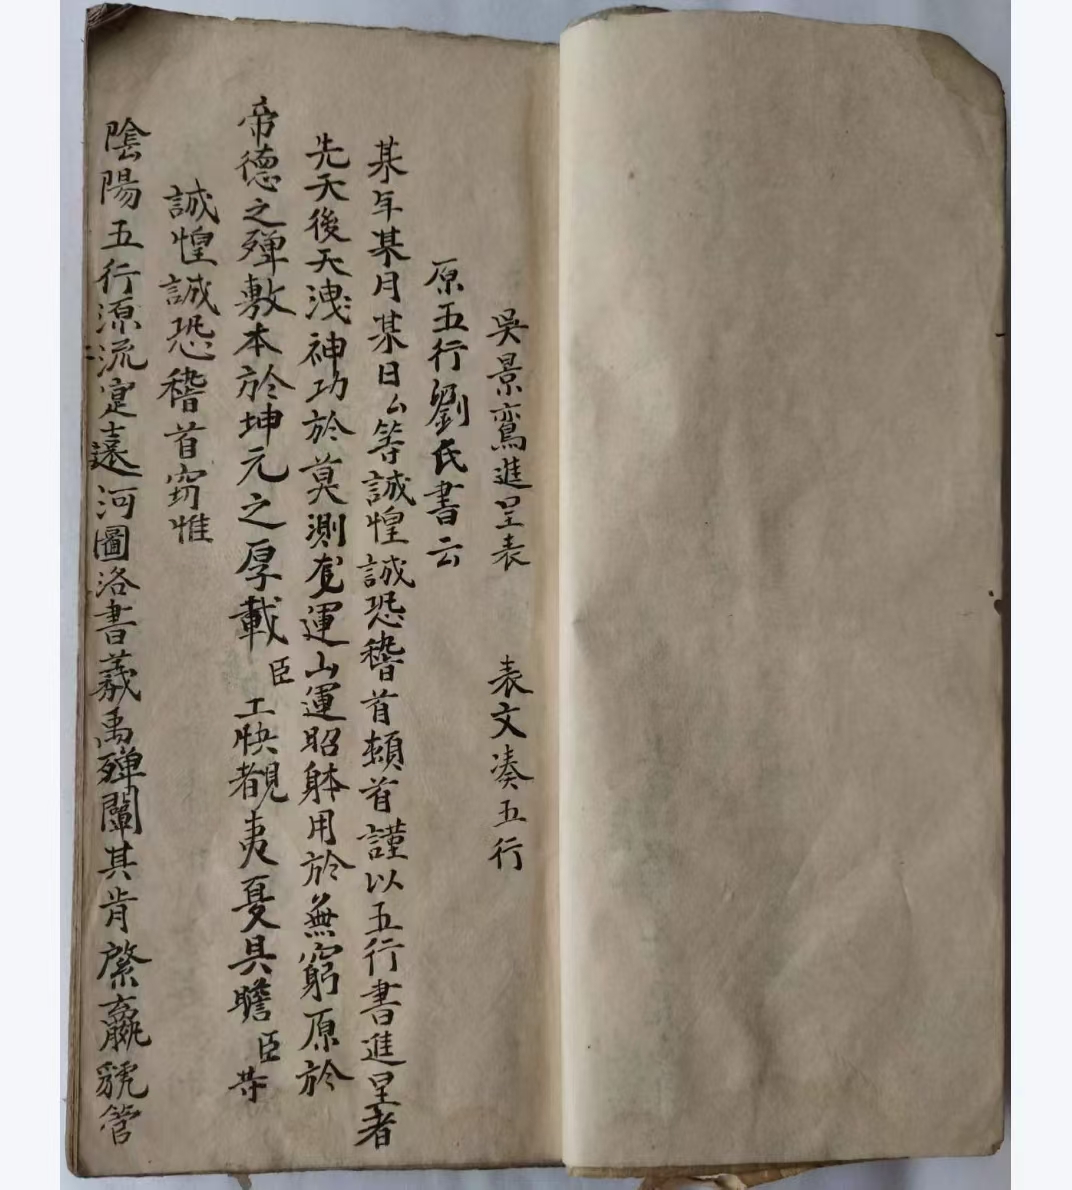 吳景鸞進呈表 表文湊五行
原五行劉氏書云
某年某月某日厶等誠惶誠恐稽首頓首謹以五行書進呈者
先天後天洩神功於莫測 運山運昭躰用於無窮原於
帝德之殫敷本於坤元之厚載臣工快覩夷夏具瞻臣等
誠惶誠恐稽首窃惟
陰陽五行源流寔遠河圖洛書羲禹殫闡其肯綮嬴號管